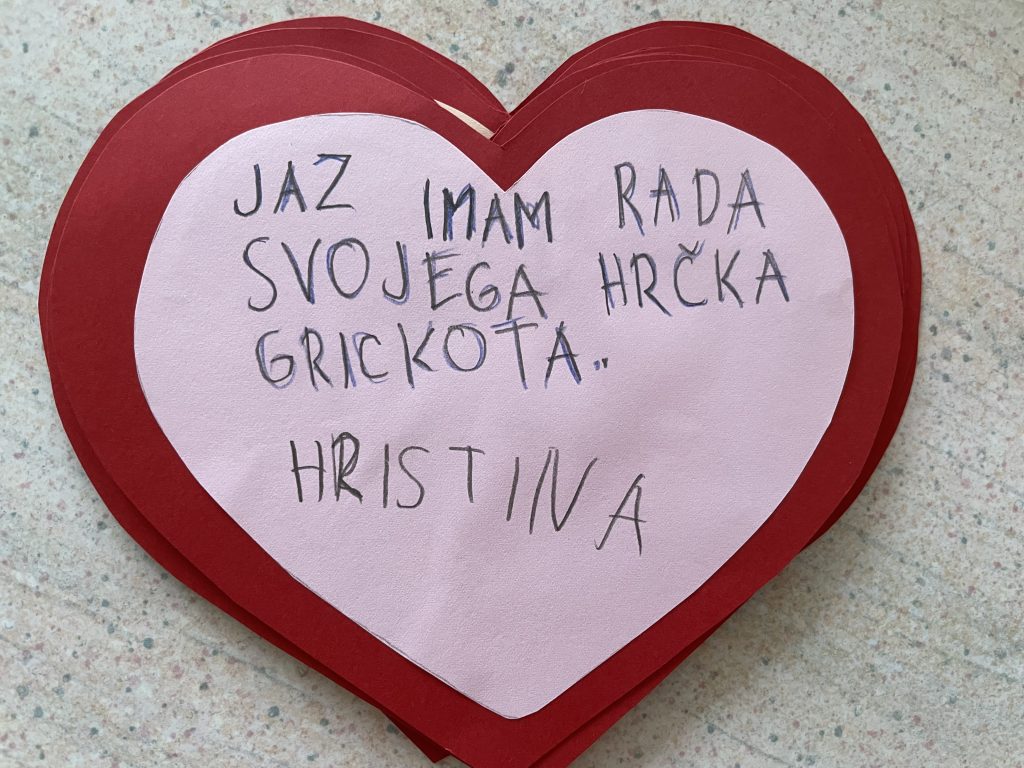 JAZ IMAM RADA
SVOJEGA HRČKA
GRICKOTA..
HRISTINA